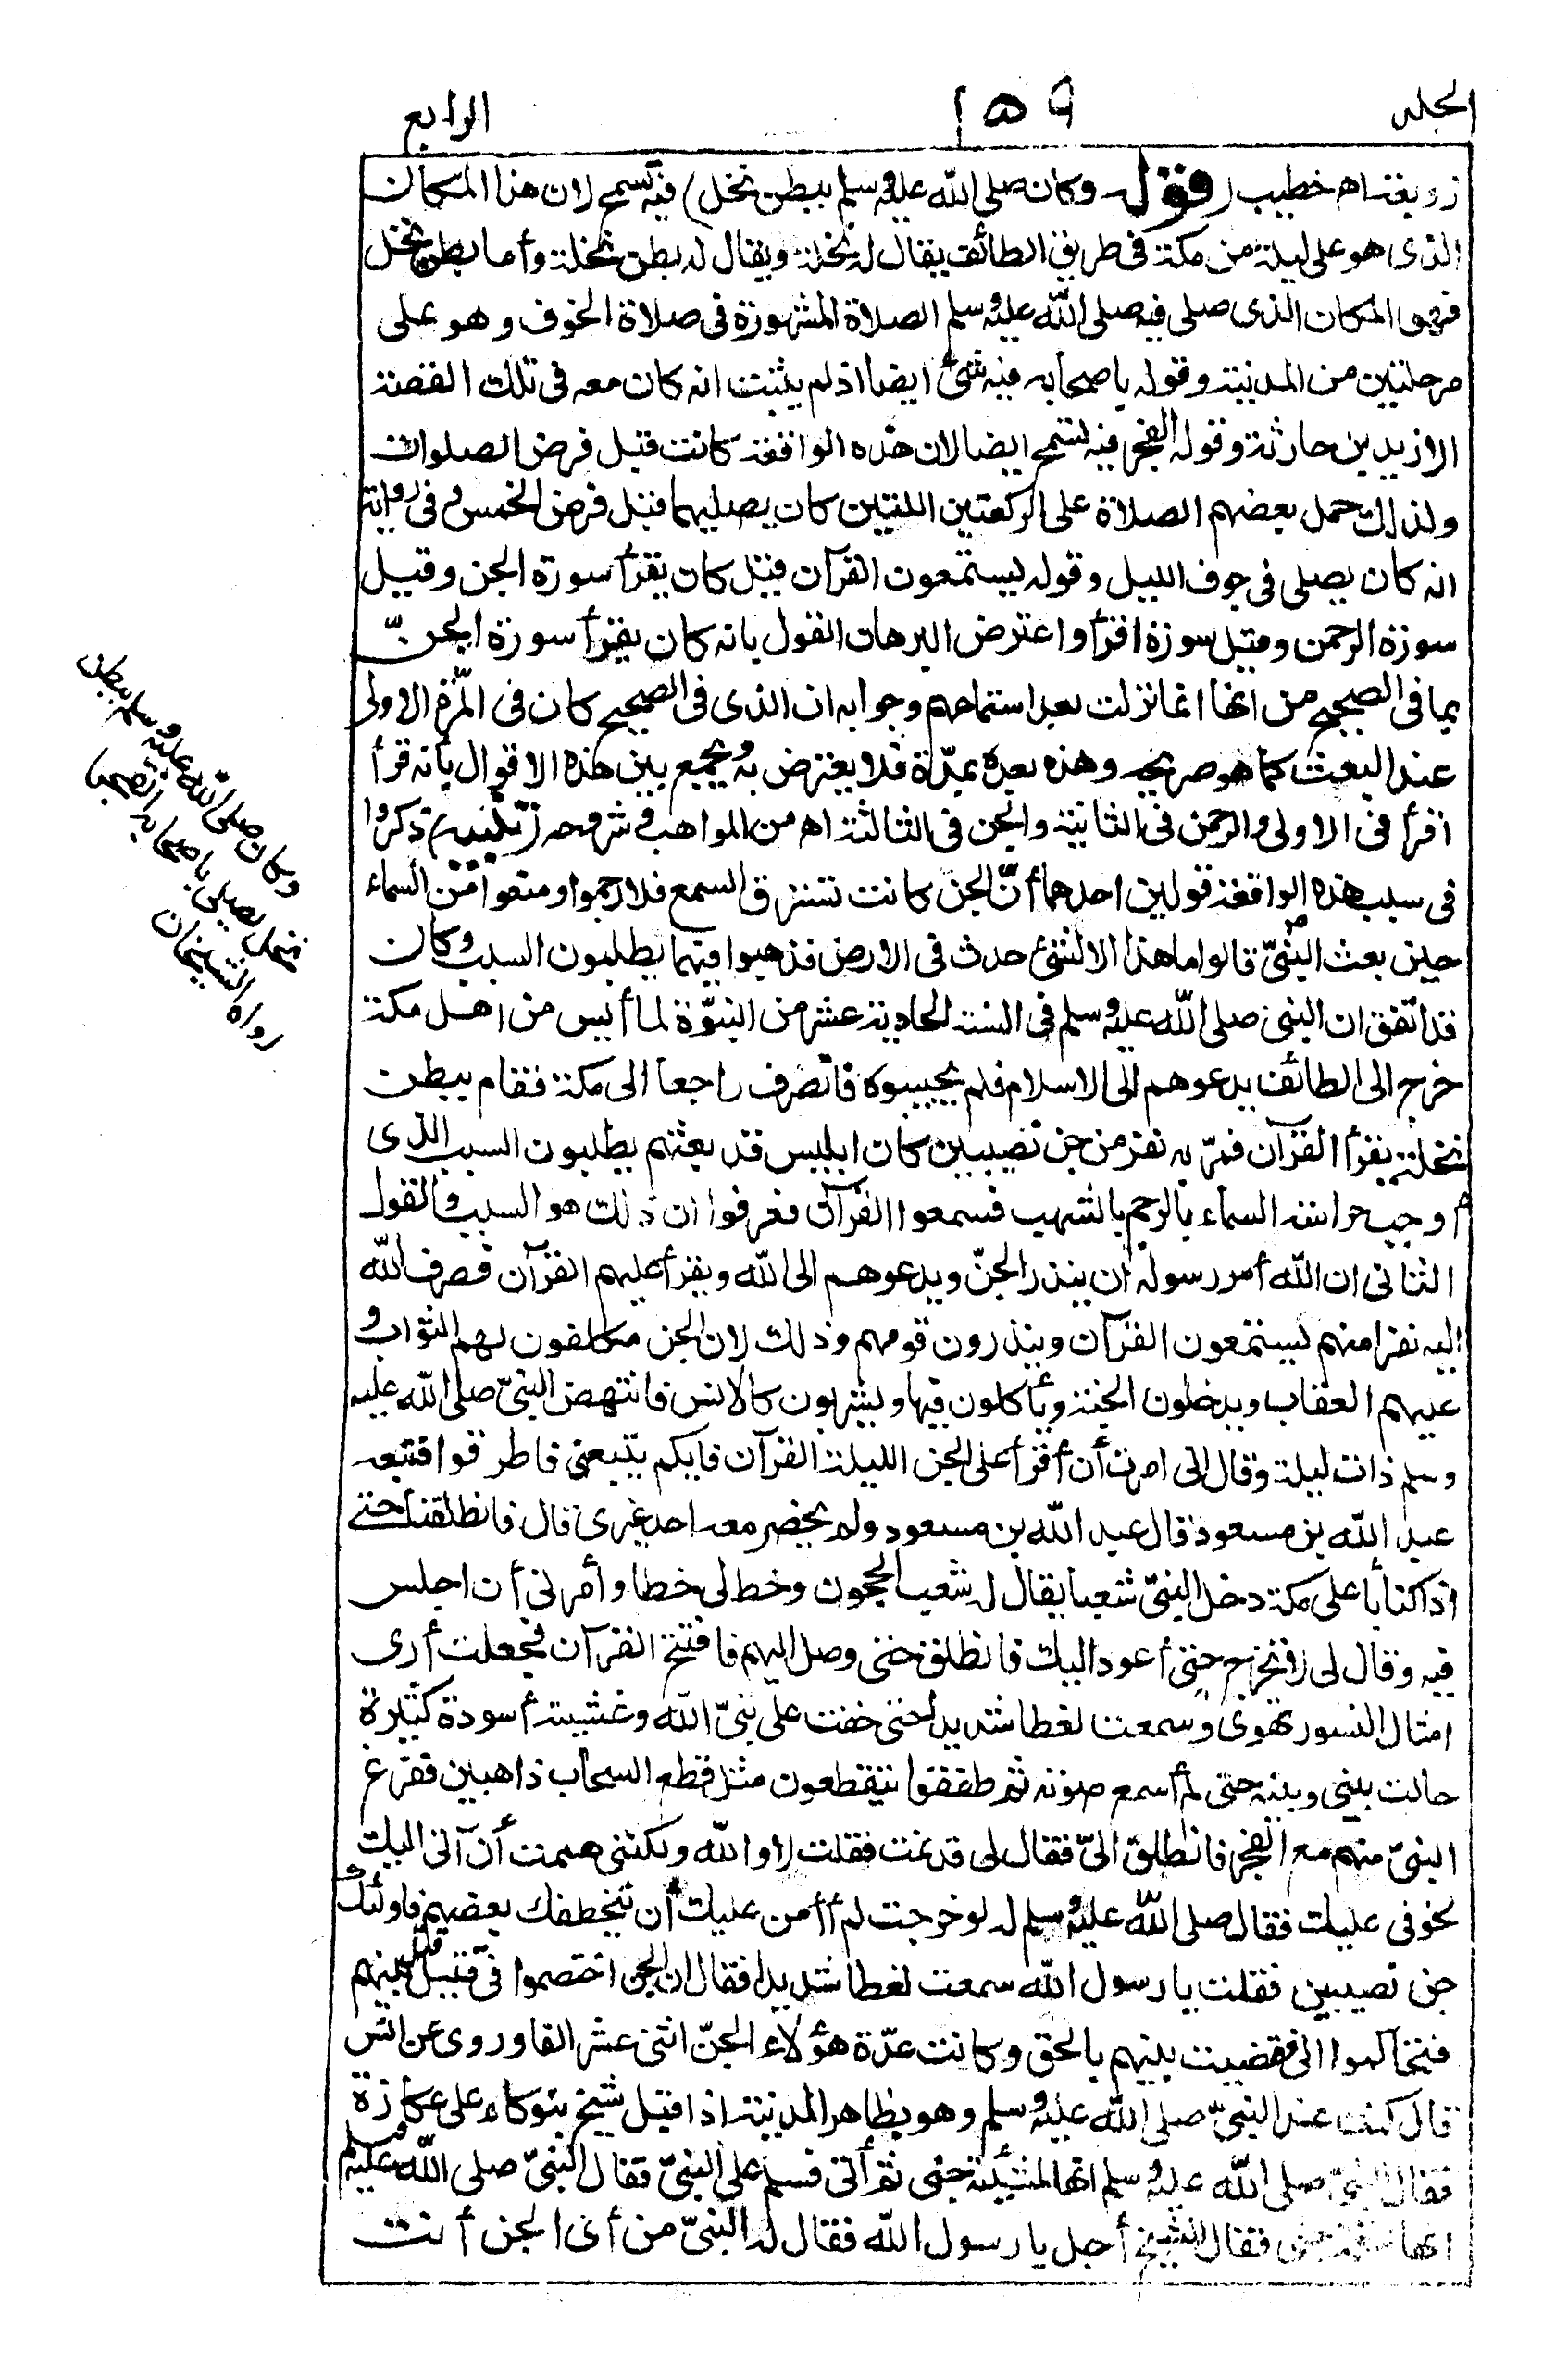 الجلد ١٥٩ الرابع
زوبعة اه خطيب (قوله وكان صلى الله عليه وسلم ببطن نخل) فيه تسمح لان هذا المكان
الذى هو على ليلة من مكة فى طريق الطائف يقال له نخلة ويقال له بطن نخلة وأما بطن نخل
فهو المكان الذى صلى فيه صلى الله عليه وسلم الصلاة المشهورة فى صلاة الخوف وهو على
مرحلتين من المدينة وقوله باصحابه فيه شئ ايضا اذ لم يثبت انه كان معه فى تلك القصة
الا زيد بن حارثة وقوله الفجر فيه تسمح ايضا لان هذه الواقعة كانت قبل فرض الصلوات
ولذلك حمل بعضهم الصلاة على الركعتين اللتين كان يصليهما قبل فرض الخمس وفى رواية
انه كان يصلى فى جوف الليل وقوله ليستمعون القرآن قيل كان يقرأ سورة الجن وقيل
سورة الرحمن وقيل سورة اقرأ واعترض البرهان القول بانه كان يقرأ سورة الجن
بما فى الصحيح من انها انما نزلت بعد استماعهم وجوابه ان الذى فى الصحيح كان فى المرّة الاولى
عند البعث كما هو صريحه وهذه بعده بمدّة فلا يعترض به ويجمع بين هذه الاقوال بأنه قرأ
اقرأ فى الاولى والرحمن فى الثانية والجن فى الثالثة اه من المواهب وشرحه (تنبيه) ذكروا
فى سبب هذه الواقعة قولين احدهما أنّ الجن كانت تسترق السمع فلما رجموا ومنعوا من السماء
حين بعث النبىّ قالوا ما هذا الا لشئ حدث فى الارض فذهبوا فيها يطلبون السبب وكان
قد اتفق ان النبى صلى الله عليه وسلم فى السنة الحادية عشر من النبوّة لما أيس من اهل مكة
خرج الى الطائف يدعوهم الى الاسلام فلم يجيبوه فانصرف راجعا الى مكة فقام ببطن
نخلة يقرأ القرآن فمرّ به نفر من جن نصيبين كان ابليس قد بعثهم يطلبون السبب الذى
أوجب حراسة السماء بالرجم بالشهب فسمعوا القرآن فعرفوا ان ذلك هو السبب والقول
الثانى ان الله أمر رسوله ان ينذر الجنّ ويدعوهم الى الله ويقرأ عليهم القرآن فصرف الله
اليه نفرا منهم ليستمعون القرآن وينذرون قومهم وذلك لان الجن مكلفون لهم الثواب و
عليهم العقاب ويدخلون الجنة ويأكلون فيها ويشربون كالانس فانتهض النبىّ صلى الله عليه
وسلم ذات ليلة وقال انى امرت أن أقرأ على الجن الليلة القرآن فايكم يتبعنى فاطرقوا فتبعه
عبد الله بن مسعود قال عبد الله بن مسعود ولم يحضر معه احد غيرى قال فانطلقنا حتى
اذا كنا بأعلى مكة دخل النبىّ شعبا يقال له شعب الحجون وخط لى خطا وأمرنى أن اجلس
فيه وقال لى لا تخرج حتى أعود اليك فانطلق حتى وصل اليهم فافتتح القرآن فجعلت أرى
امثال النسور تهوى وسمعت لغطا شديدا حتى خفت على نبىّ الله وغشيته أسودة كثيرة
حالت بينى وبينه حتى لم أسمع صوته ثم طفقوا يتقطعون مثل قطع السحاب ذاهبين ففرغ
النبىّ منهم مع الفجر فانطلق الىّ فقال لى قد نمت فقلت لا والله ولكننى هممت أن آتى اليك
لخوفى عليك فقال صلى الله عليه وسلم له لو خرجت لم أأمن عليك أن يتخطفك بعضهم فاولئك
جن نصيبين فقلت يا رسول الله سمعت لغطا شديدا فقال ان الجن اختصموا فى قتيل قتل بينهم
فتحاكموا الى فقضيت بينهم بالحق وكانت عدّة هؤلاء الجنّ اثنى عشر الفا وروى عن انس
قال كنت عند النبىّ صلى الله عليه وسلم وهو بظاهر المدينة اذ اقبل شيخ يتوكاء على عكازة
فقال النبىّ صلى الله عليه وسلم انها لمشية جنى ثم أتى فسلم على النبىّ فقال النبىّ صلى الله عليه وسلم
انها فقال الشيخ أجل يا رسول الله فقال له النبىّ من أى الجن أنت
وكان صلى الله عليه وسلم ببطن
نخل يصلى باصحابه الفجر
رواه الشيخان